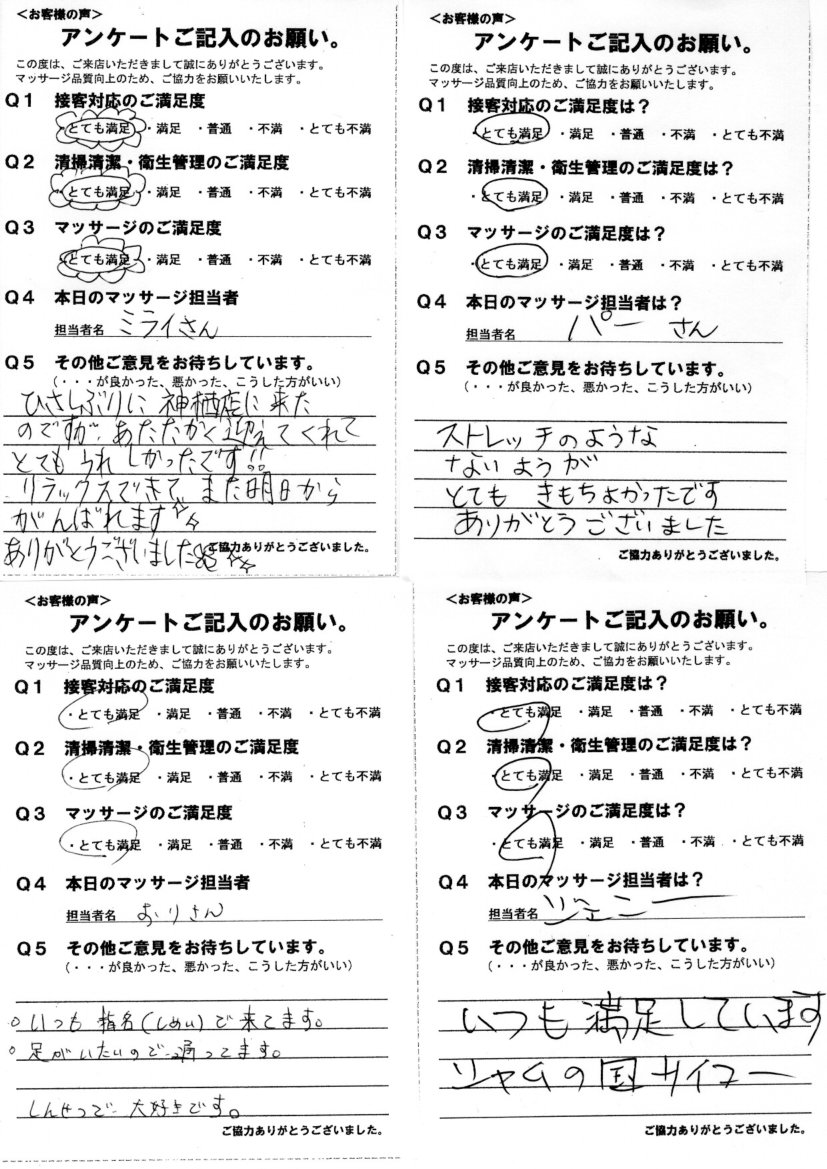 ＜お客様の声＞
アンケートご記入のお願い。
この度は、ご来店いただきまして誠にありがとうございます。
マッサージ品質向上のため、ご協力をお願いいたします。
Q1 接客対応のご満足度
・とても満足 ・満足 ・普通 ・不満 ・とても不満
Q2 清掃清潔・衛生管理のご満足度
・とても満足 ・満足 ・普通 ・不満 ・とても不満
Q3 マッサージのご満足度
・とても満足 ・満足 ・普通 ・不満 ・とても不満
Q4 本日のマッサージ担当者
担当者名 ミライさん
Q5 その他ご意見をお待ちしています。
（・・・が良かった、悪かった、こうした方がいい）
ひさしぶりに 神栖店に来た
のですが、あたたかく迎えてくれて
とても うれしかったです!!
リラックスできて、また明日から
がんばれます☆☆
ありがとうございました
ご協力ありがとうございました。
＜お客様の声＞
アンケートご記入のお願い。
この度は、ご来店いただきまして誠にありがとうございます。
マッサージ品質向上のため、ご協力をお願いいたします。
Q1 接客対応のご満足度は？
・とても満足 ・満足 ・普通 ・不満 ・とても不満
Q2 清掃清潔・衛生管理のご満足度は？
・とても満足 ・満足 ・普通 ・不満 ・とても不満
Q3 マッサージのご満足度は？
・とても満足 ・満足 ・普通 ・不満 ・とても不満
Q4 本日のマッサージ担当者は？
担当者名 パー さん
Q5 その他ご意見をお待ちしています。
（・・・が良かった、悪かった、こうした方がいい）
ストレッチのような
ないようが
とても きもちよかったです
ありがとうございました
ご協力ありがとうございました。
＜お客様の声＞
アンケートご記入のお願い。
この度は、ご来店いただきまして誠にありがとうございます。
マッサージ品質向上のため、ご協力をお願いいたします。
Q1 接客対応のご満足度
・とても満足 ・満足 ・普通 ・不満 ・とても不満
Q2 清掃清潔・衛生管理のご満足度
・とても満足 ・満足 ・普通 ・不満 ・とても不満
Q3 マッサージのご満足度
・とても満足 ・満足 ・普通 ・不満 ・とても不満
Q4 本日のマッサージ担当者
担当者名 おりさん
Q5 その他ご意見をお待ちしています。
（・・・が良かった、悪かった、こうした方がいい）
○いつも 指名(しめい)で来てます。
○足がいたいので通ってます。
しんせつで 大好きです。
ご協力ありがとうございました。
＜お客様の声＞
アンケートご記入のお願い。
この度は、ご来店いただきまして誠にありがとうございます。
マッサージ品質向上のため、ご協力をお願いいたします。
Q1 接客対応のご満足度は？
・とても満足 ・満足 ・普通 ・不満 ・とても不満
Q2 清掃清潔・衛生管理のご満足度は？
・とても満足 ・満足 ・普通 ・不満 ・とても不満
Q3 マッサージのご満足度は？
・とても満足 ・満足 ・普通 ・不満 ・とても不満
Q4 本日のマッサージ担当者は？
担当者名 ジェニー
Q5 その他ご意見をお待ちしています。
（・・・が良かった、悪かった、こうした方がいい）
いつも満足しています
シャムの国サイコー
ご協力ありがとうございました。